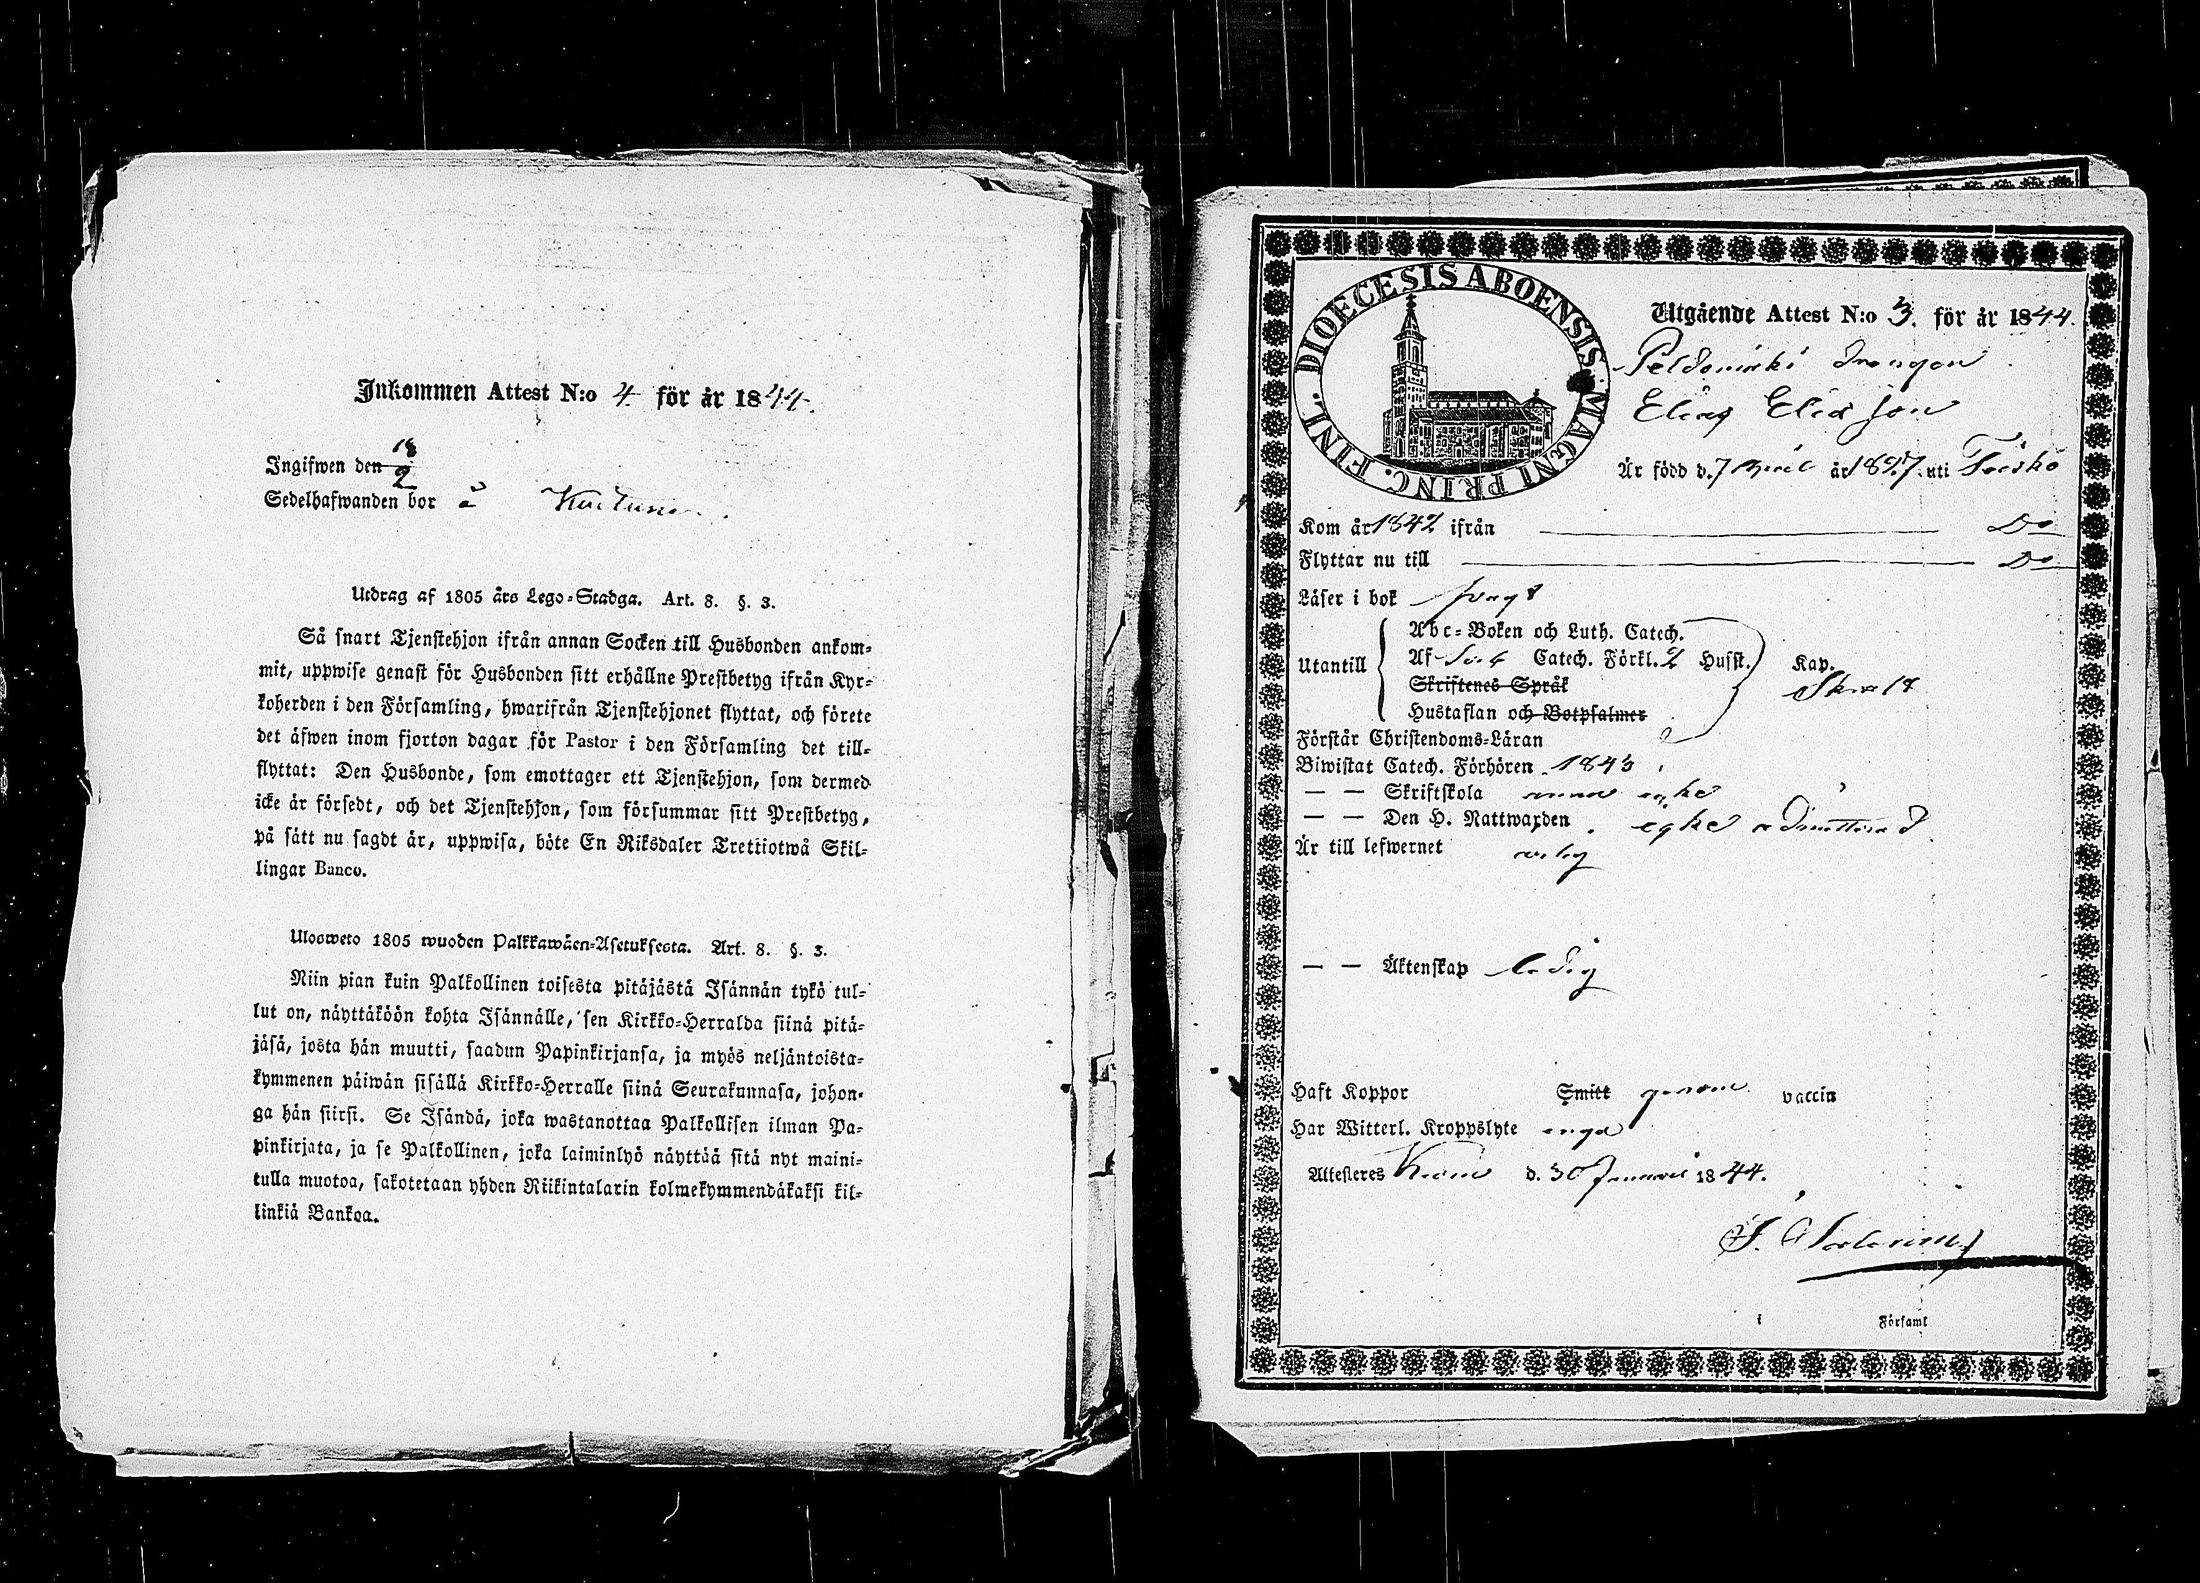 Inkommen Attest N:o 4 för år 1844.
Ingifwen den 18/2
Sedelhafwanden bor å
Utdrag af 1805 års Lego-Stadga. Art. 8. §. 3.
Så snart Tjenstehjon ifrån annan Socken till Husbonden ankom-
mit, uppwise genast för Husbonden sitt erhållne Prestbetyg ifrån Kyr-
koherden i den Församling, hwarifrån Tjenstehjonet flyttat, och förete
det äfwen inom fjorton dagar för Pastor i den Församling det till-
flyttat: Den Husbonde, som emottager ett Tjenstehjon, som dermed
icke är försedt, och det Tjenstehjon, som försummar sitt Prestbetyg,
på sätt nu sagdt är, uppwisa, böte En Riksdaler Trettiotwå Skil-
lingar Banco.
Ulosweto 1805 wuoden Palkkawäen-Asetuksesta. Art. 8. §. 3.
Niin pian kuin Palkollinen toisesta pitäjästä Isännän tykö tul-
lut on, näyttäköön kohta Isännälle, sen Kirkko-Herralda siinä pitä-
jäsä, josta hän muutti, saadun Papinkirjansa, ja myös neljäntoista-
kymmenen päiwän sisällä Kirkko-Herralle siinä Seurakunnasa, johon-
ga hän siirsi. Se Isändä, joka wastanottaa Palkollisen ilman Pa-
pinkirjata, ja se Palkollinen, joka laiminlyö näyttää sitä nyt maini-
tulla muotoa, sakotetaan yhden Riikintalarin kolmekymmendäkaksi kil-
linkiä Bankoa.
DIOECESIS ABOENSIS MAGNI PRINC. FINL.
Utgående Attest N:o 3. för år 1844.
drengen
Elias Elias son
Är född d. 7 April år 1827 uti
Kom år 1842 ifrån Do
Flyttar nu till Do
Läser i bok svagt
Abc-Boken och Luth. Catech.
Utantill Af Catech. Förkl. 2 Husst. Kap.
Skriftenes Språk
Hustaflan och Botpsalmer
Förstår Christendoms-Läran
Biwistat Catech. Förhören 1843
— — Skriftskola ännu icke
— — Den H. Nattwarden icke admitterad
Är till lefwernet
— — Äktenskap ledig
Haft Koppor Smitt genom vaccin
Har Witterl. Kroppslyte inga
Attesteres d. 30 Januari 1844.
i Församl